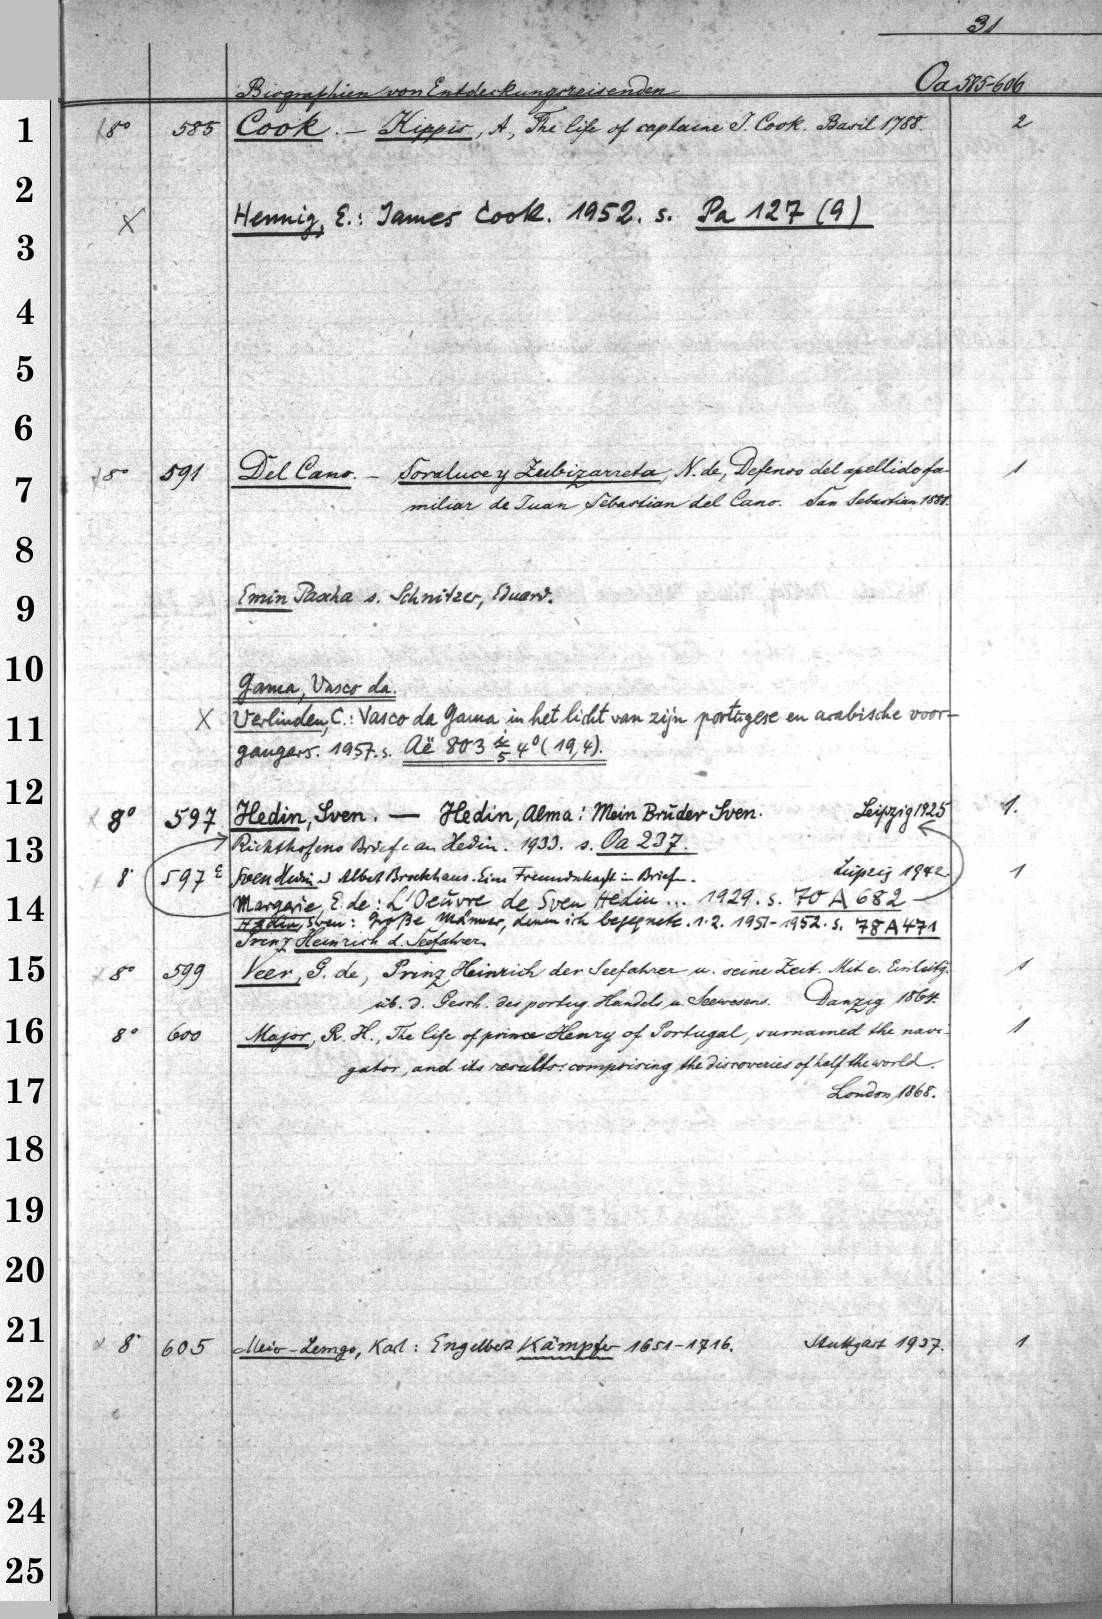 31
Biographien von Entdeckungsreisenden Oa 585-606
1 8° 585 Cook. — Kippis, A., The life of captaine J. Cook. Basil 1788. 2
2
X Hennig, E.: James Cook. 1952. s. Pa 127 (9)
3
4
5
6
8° 591 Del Cano. — Soraluce y Zubizarreta, N. de, Defenso del apellido fa- 1
7 miliar de Juan Sebastian del Cano. San Sebastian 1881.
8
9 Emin Pascha s. Schnitzer, Eduard.
10
Gama, Vasco da.
11 X Verlinden, C.: Vasco da Gama in het licht van zijn portugese en arabische voor-
gangers. 1957. s. Aë 803 i/5 4° (19,4).
12
8° 597 Hedin, Sven. — Hedin, Alma: Mein Bruder Sven. Leipzig 1925 1.
13 Richthofens Briefe an Hedin. 1933. s. Oa 237.
8° 597 E Sven Hedin u Albert Brockhaus. Eine Freundschaft in Briefen. Leipzig 1942 1
14 Margerie E. de: L'Oeuvre de Sven Hedin... 1929. s. 70 A 682
Hedin, Sven: Große Männer, denen ich begegnete. 1.2. 1951-1952. s. 78 A 471
Prinz Heinrich d. Seefahrer.
15 8° 599 Veer, G. de, Prinz Heinrich der Seefahrer u. seine Zeit. Mit e. Einleitg. 1
üb. d. Gesch. des portug. Handels u. Seewesens. Danzig 1864.
16 8° 600 Major, R. H., The life of prince Henry of Portugal, surnamed the navi- 1
gator, and its results: comprising the discoveries of half the world.
17 London, 1868.
18
19
20
21 8° 605 Meier-Lemgo, Karl: Engelbert Kämpfer 1651-1716. Stuttgart 1937. 1
22
23
24
25